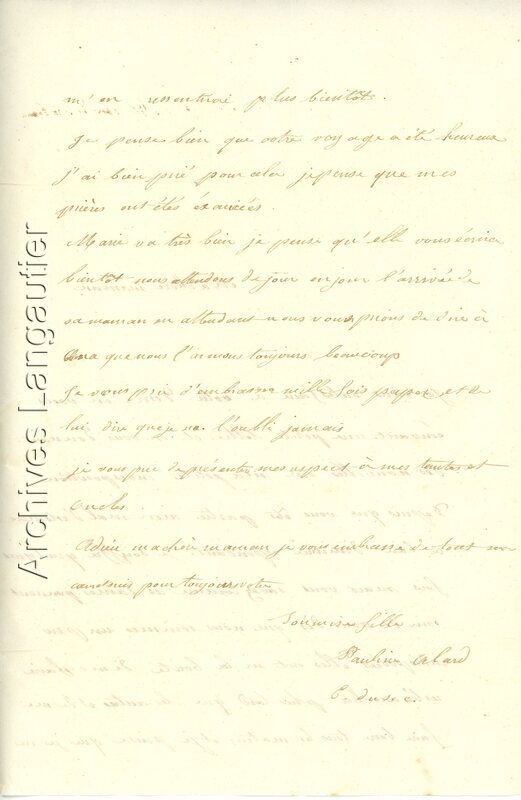 m'en ressentirai plus bientôt.
Je pense bien que votre voyage a été heureux
j'ai bien prié pour cela je pense que mes
prières ont étés éxaucées.
Marie va très bien je pense qu'elle vous écrira
bientôt nous attendons de jour en jour l'arrivée de
sa maman en attendant nous vous prions de dire à
que nous l'aimons toujours beaucoup
Je vous prie d'embrasser mille fois papa et de
lui dire que je ne l'oubli jamais
je vous prie de présenter mes respect à mes tantes et
oncles
Adieu ma chère maman je vous embrasse de tout mon
pour toujours votre
Soumise fille
Pauline Abard
E. du s. c.
Archives Langautier